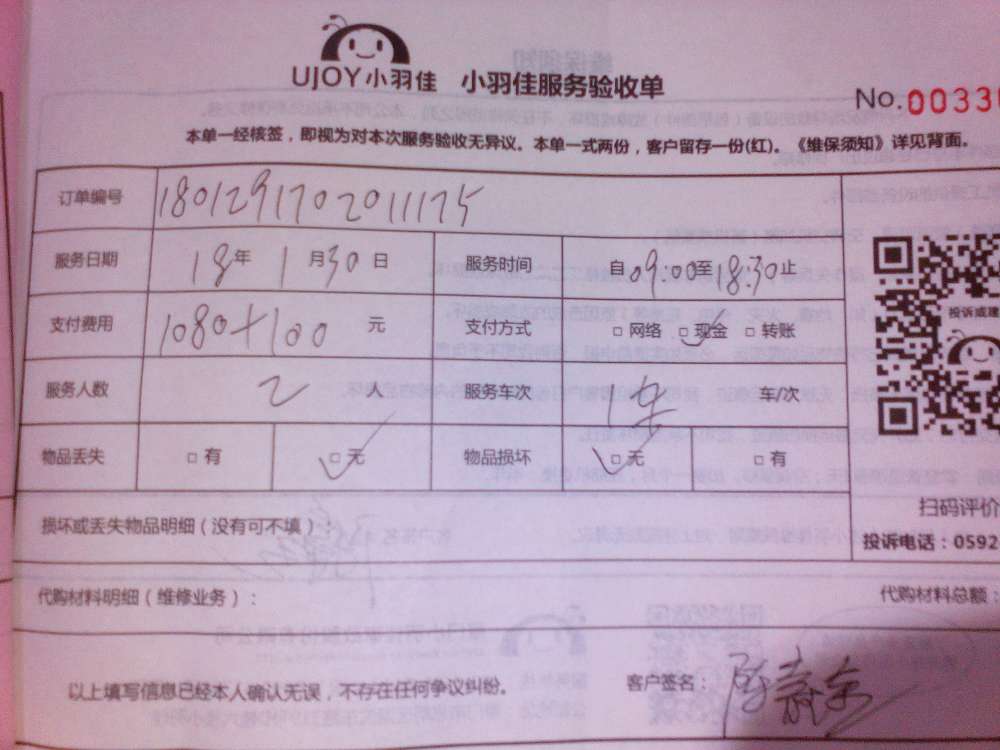 UJOY小羽佳 小羽佳服务验收单
No.0033
本单一经核签，即视为对本次服务验收无异议。本单一式两份，客户留存一份(红)。《维保须知》详见背面。
订单编号 1801291702011175
服务日期 18年 1月30日 服务时间 自09:00至18:30止
支付费用 1080+100 元 支付方式 □ 网络 □ 现金 □ 转账
投诉或建
服务人数 2 服务车次 1车 车/次
物品丢失 □ 有 □ 无 物品损坏 □ 无 □ 有
扫码评价
损坏或丢失物品明细（没有可不填）：
投诉电话：0592
代购材料明细（维修业务）： 代购材料总额：
以上填写信息已经本人确认无误，不存在任何争议纠纷。 客户签名：